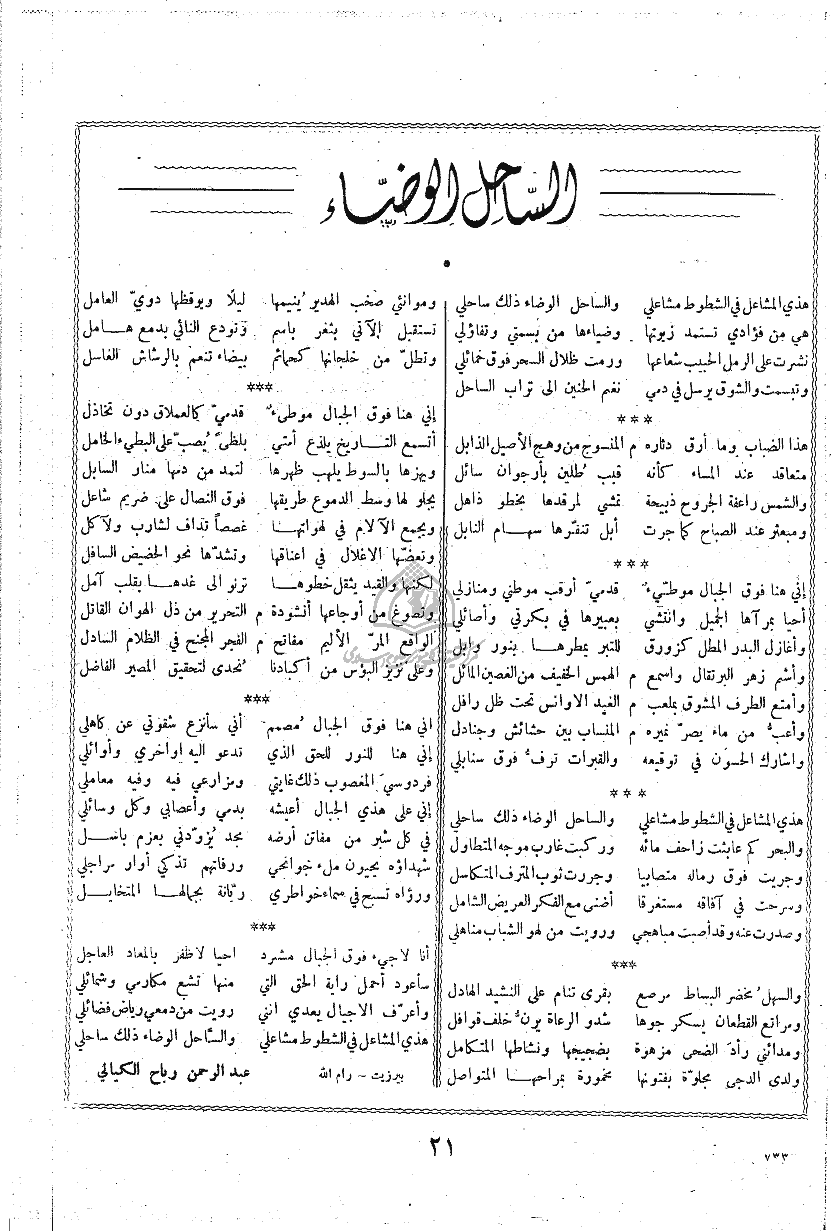 الساحل الوضّاء
هذي المشاعل في الشطوط مشاعلي والساحل الوضاء ذلك ساحلي
هي من فؤادي تستمد زيوتها وضياءها من بسمتي وتفاؤلي
نشرت على الرمل الحبيب شعاعها ورمت ظلال السحر فوق خمائلي
وتبسمت والشوق يرسل في دمي نغم الحنين الى تراب الساحل
***
هذا الضباب وما أرق دثاره م المنسوج من وهج الأصيل الذابل
متعاقد عند المساء كأنه قبب طلين بأرجوان سائل
والشمس راعفة الجروح ذبيحة تمشي لمرقدها بخطو ذاهل
ومبعثر عند الصباح كما جرت أبل تنفّرها سهام النابل
***
إني هنا فوق الجبال موطىءٌ قدميّ أرقب موطني ومنازلي
أحيا بمرآها الجميل وانتشي بعبيرها في بكرتي وأصائلي
وأغازل البدر المطل كزورق للتبر يمطرها بنور وابل
وأشم زهر البرتقال واسمع م الهمس الخفيف من الغصين المائل
وأمتع الطرف المشوق بملعب م الغيد الاوانس تحت ظل رافل
وأعبُّ من ماء بصرّ نميره م المنساب بين حشائش وجنادل
واشارك الحسّون في توقيعه والقبرات ترفُّ فوق سنابلي
***
هذي المشاعل في الشطوط مشاعلي والساحل الوضاء ذلك ساحلي
والبحر كم عابثت زاحف مائه وركبت غارب موجه المتطاول
وجريت فوق رماله متصابيا وجررت ثوب المترف المتكاسل
وسرحت في آفاقه مستغرقا أضنى مع الفكر العريض الشامل
وصدرت عنه وقد أصبت مباهجي ورويت من لهو الشباب مناهلي
***
والسهلُ مخضر البساط مرصع بقرى تنام على النشيد الهادل
ومراتع القطعان يسكر جوها شدو الرعاة يرنُّ خلف قوافل
ومدائني رأد الضحى مزهوة بضجيجها ونشاطها المتكامل
ولدى الدجى مجلوّة بفتونها مخمورة بمراحها المتواصل
وموانئي صخب الهدير يُنيمها ليلًا ويوقظها دويّ العامل
تستقبل الآتي بثغر باسم وتودع النائي بدمع هامل
وتطلّ من خلجانها كحمائم بيضاء تنعم بالرشاش الغاسل
***
إني هنا فوق الجبال موطىءٌ قدميّ كالعملاق دون تخاذل
أتسمع التاريخ يلذع أمتي بلظىً يُصبّ على البطيء الخامل
ويهزها بالسوط يلهب ظهرها لتمد من دمها منار السابل
يجلو لها وسط الدموع طريقها فوق النصال على ضريم شاعل
ويجمع الآلام في لهواتها غصصاً تذاف لشارب ولآكل
وتعضّها الاغلال في اعناقها وتشدّها نحو الحضيض السافل
لكنها والقيد يثقل خطوها ترنو الى غدها بقلب آمل
وتصوغ من أوجاعها أنشودة م التحرير من ذل الهوان القاتل
الواقع المرّ الأليم مفاتح م الفجر المجنح في الظلام السادل
وعلى نزيز البؤس من أكبادنا نُحدى لتحقيق المصير الفاضل
***
اني هنا فوق الجبال مُصمم أني سأنزع شقوتي عن كاهلي
إني هنا للنور للحق الذي تدعو اليه اواخري وأوائلي
فردوسي المغصوب ذلك غايتي ومزارعي فيه وفيه معاملي
إني على هذي الجبال أعيشه بدمي وأعصابي وكل وسائلي
في كل شبر من مفاتن أرضه مجد يُزوّدني بعزم باسل
شهداؤه يحيون ملء جوانحي ورفاتهم تذكي أوار مراجلي
ورؤاه تسبح في سماء خواطري ريّانة بجمالها المتخايل
***
أنا لاجيء فوق الجبال مشرد احيا لاظفر بالمعاد العاجل
سأعود أحمل راية الحق التي منها تشع مكارمي وشمائلي
وأعرّف الاجيال بعدي انني رويت من دمعي رياض فضائلي
هذي المشاعل في الشطوط مشاعلي والساحل الوضاء ذلك ساحلي
بيرزيت ~ رام الله عبد الرحمن رباح الكيالي
٢١
٧٣٣